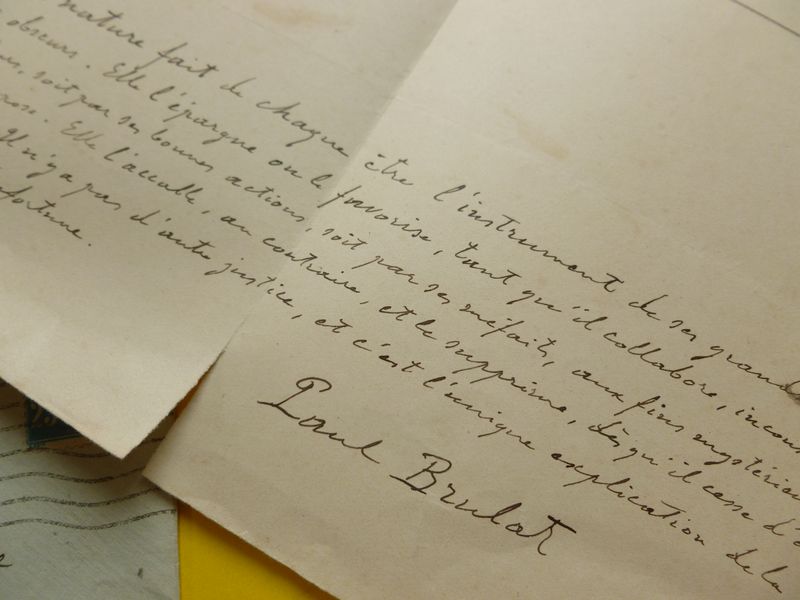 nature fait de chaque être l'instrument de ses grands
obscurs. Elle l'épargne ou le favorise, tant qu'il collabore,
soit par ses bonnes actions, soit par ses méfaits, aux fins
Elle l'accable, au contraire, et le supprime, dès qu'il cesse
Il n'y a pas d'autre justice, et c'est l'unique explication de la
Paul Brulat